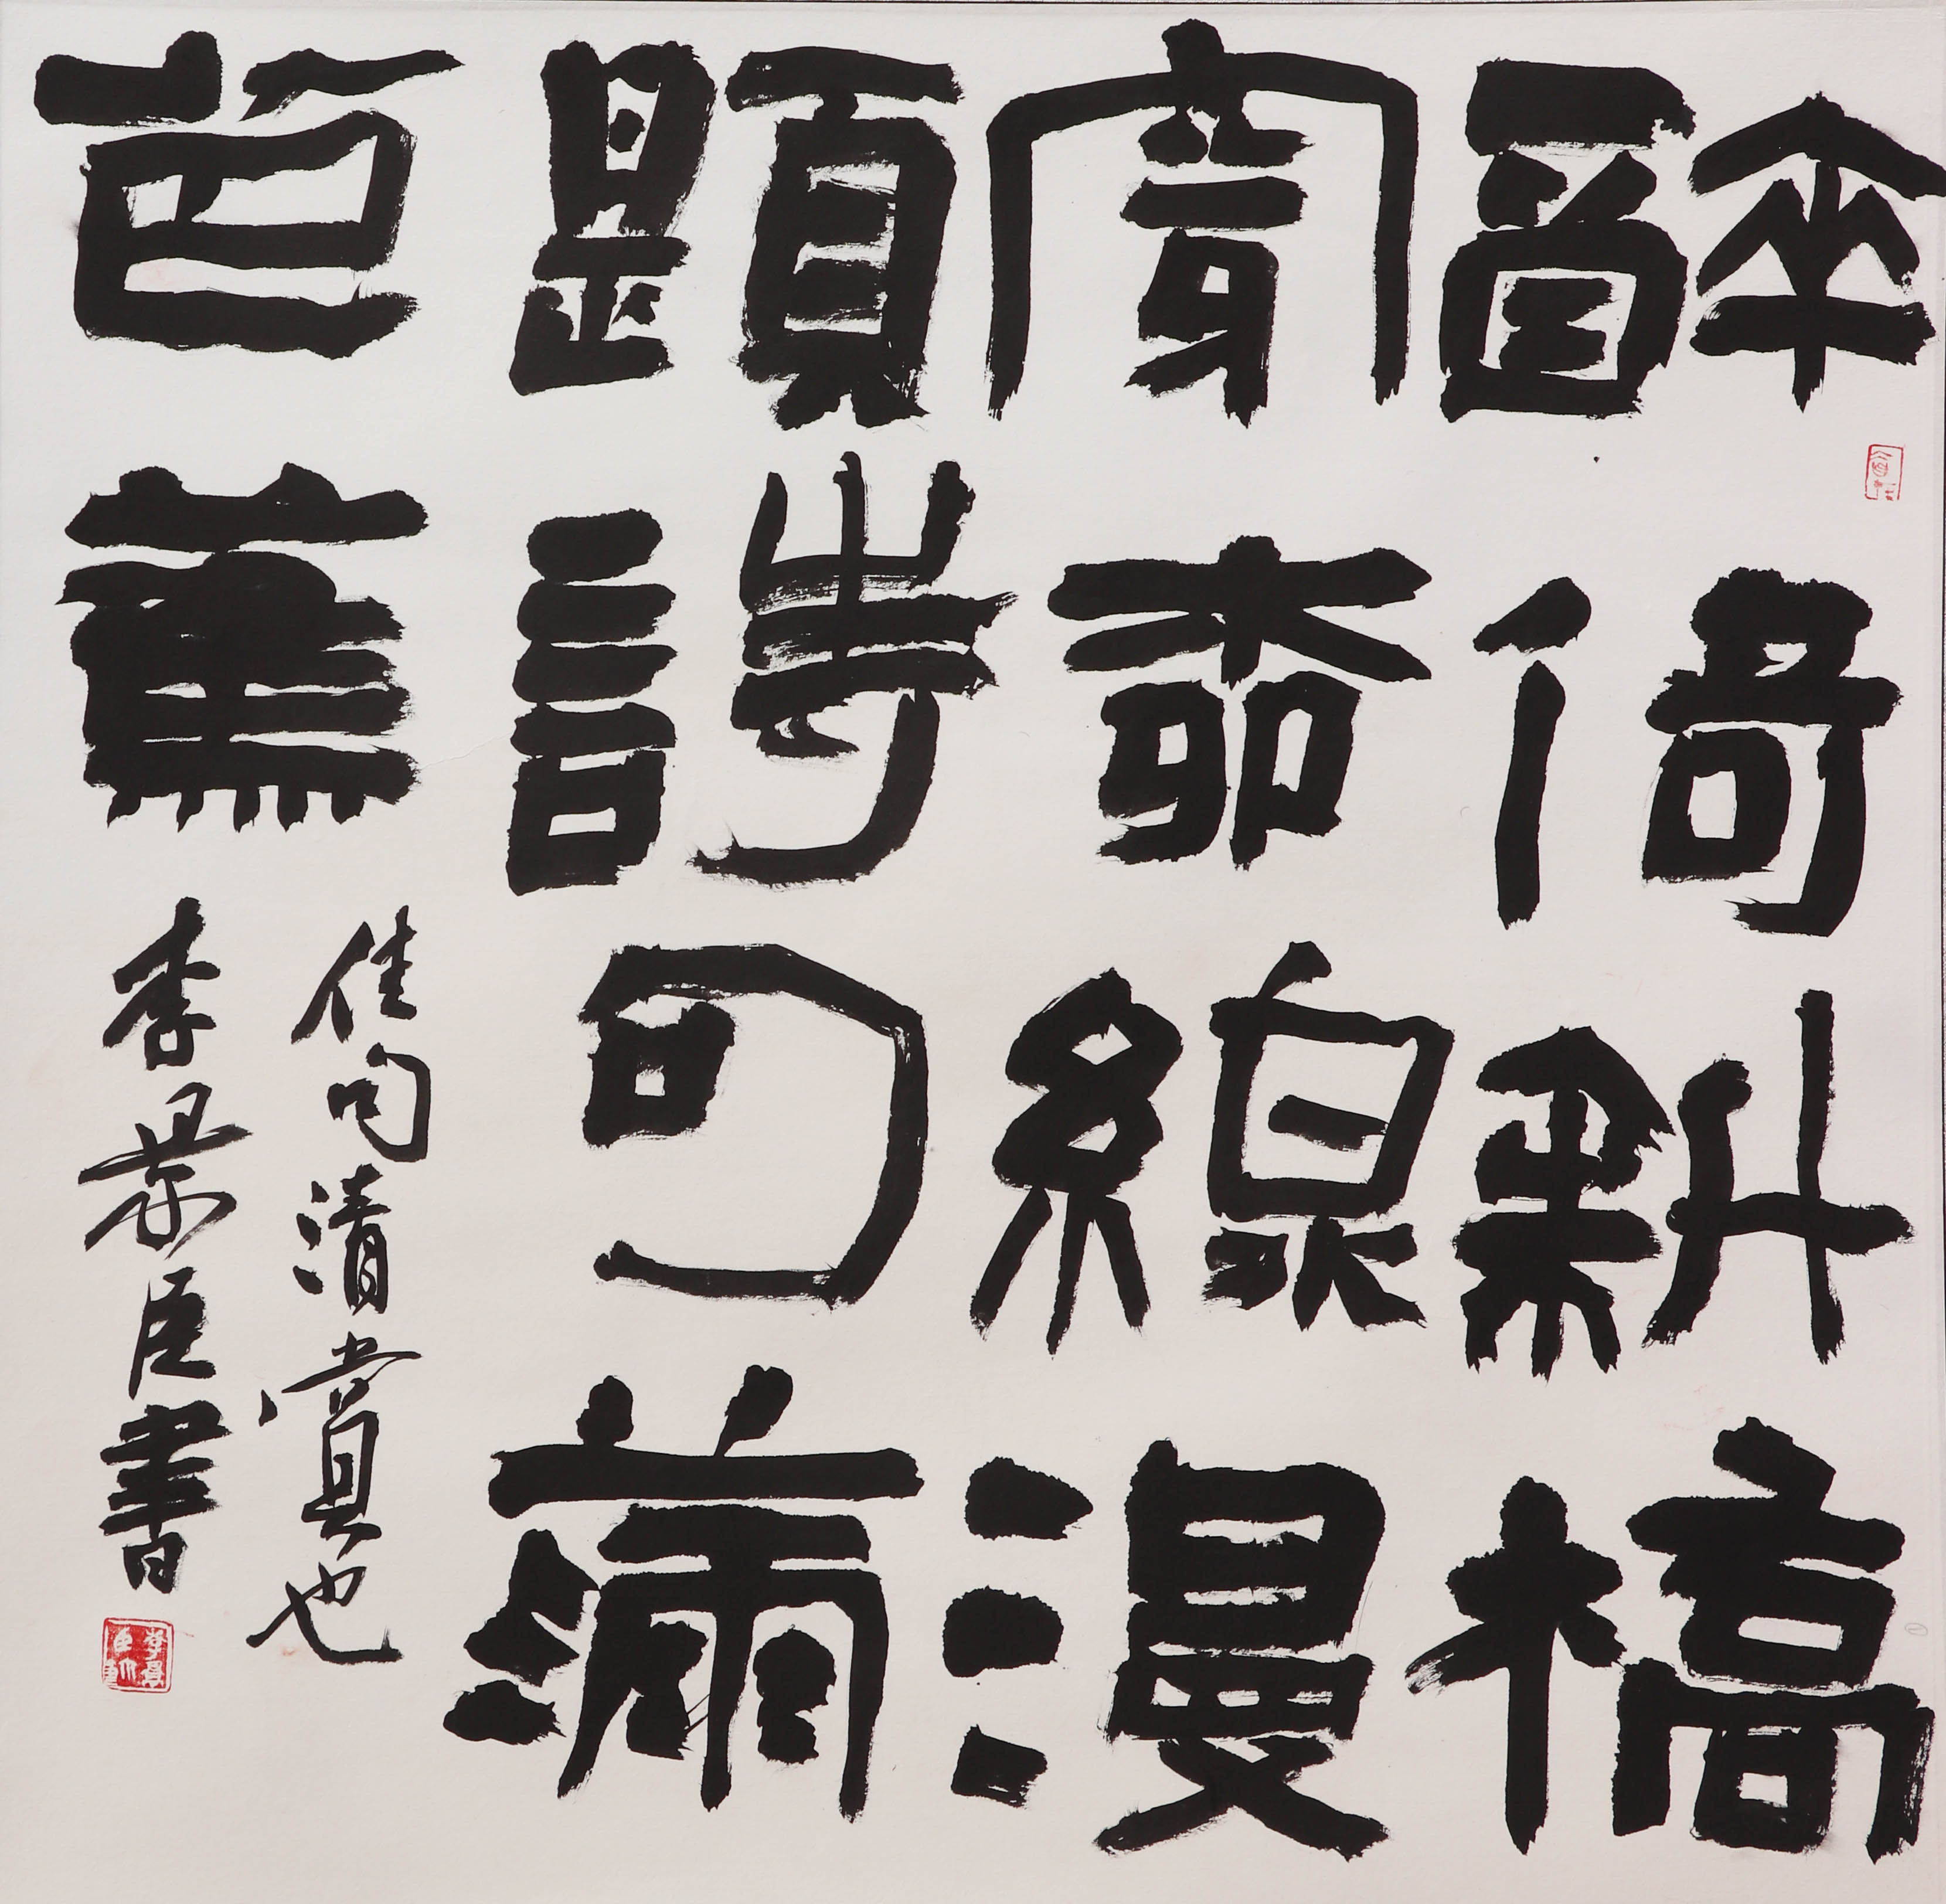 醉倚斜橋
穿柳線漫
題詩句滿
芭蕉
佳句清賞也
李景臣書